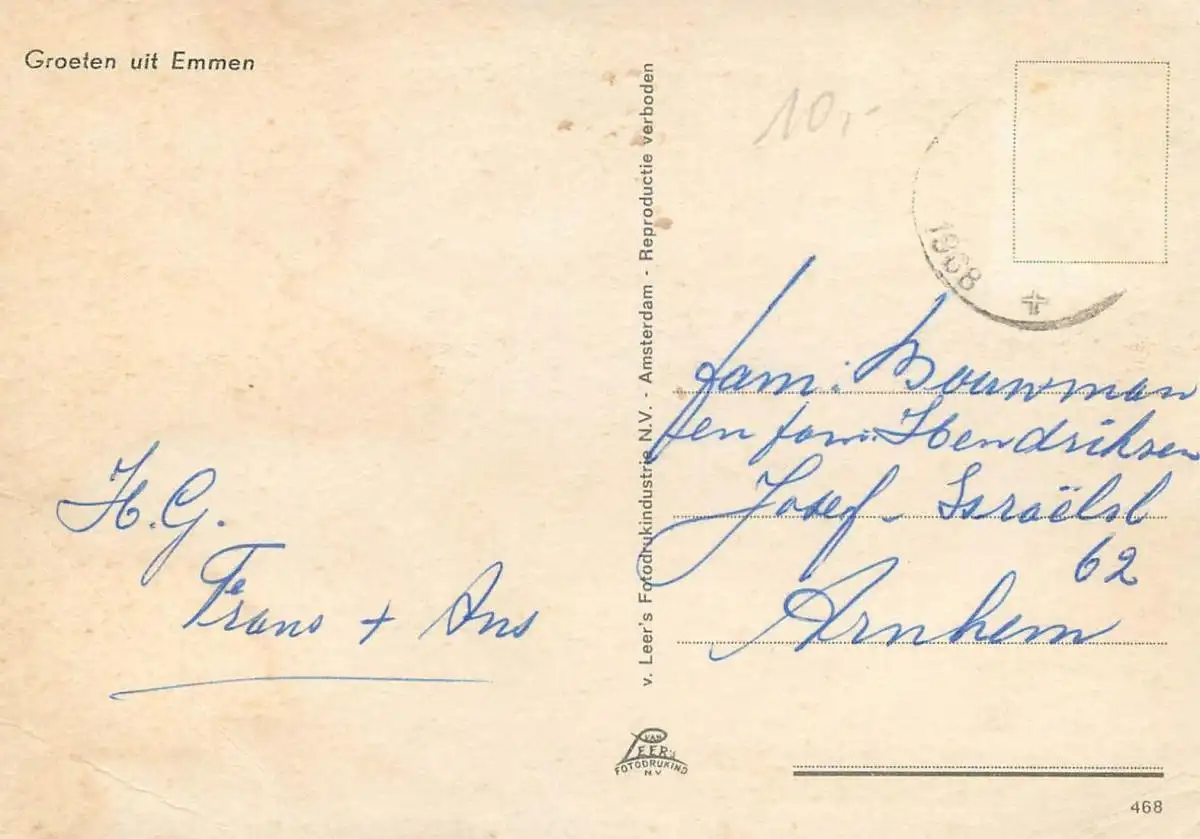 Groeten uit Emmen
H.G.
Frans + Ans
v. Leer's Fotodrukindustrie N.V. - Amsterdam - Reproductie verboden
VAN
LEER'S
FOTODRUKIND
N.V.
10,-
1968
fam: Bouwman
en fam: Hendriksen
Josef - Israëlsl
62
Arnhem
468